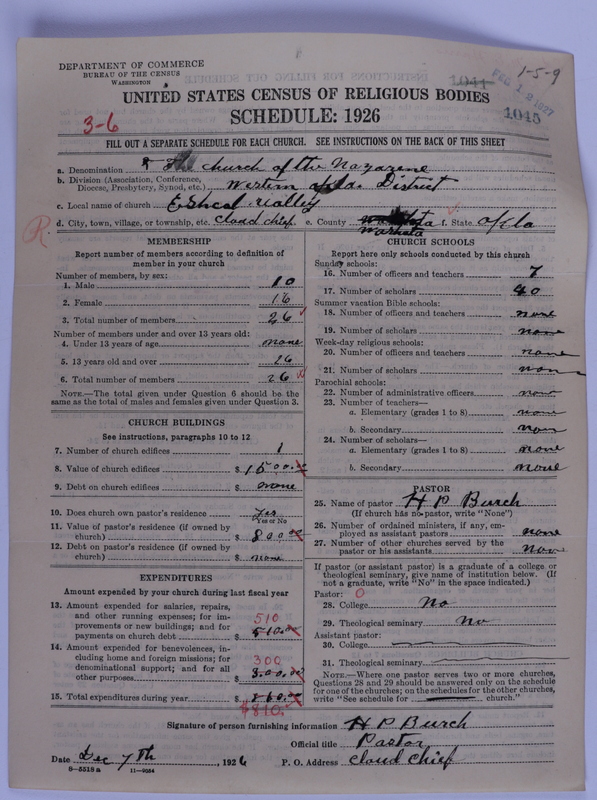 DEPARTMENT OF COMMERCE
BUREAU OF THE CENSUS
WASHINGTON
1-5-9
1041
FEB 12 1927
1045
UNITED STATES CENSUS OF RELIGIOUS BODIES
SCHEDULE: 1926
3-6
FILL OUT A SEPARATE SCHEDULE FOR EACH CHURCH. SEE INSTRUCTIONS ON THE BACK OF THIS SHEET
a. Denomination The church of the Nazarene
b. Division (Association, Conference, Diocese, Presbytery, Synod, etc.) Western okla. District
c. Local name of church Eshcol valley
d. City, town, village, or township, etc. cloud chief e. County Washita f. State okla
R
MEMBERSHIP
Report number of members according to definition of member in your church
Number of members, by sex:
1. Male 10
2. Female 16
3. Total number of members 26
Number of members under and over 13 years old:
4. Under 13 years of age none
5. 13 years old and over 26
6. Total number of members 26
NOTE.—The total given under Question 6 should be the same as the total of males and females given under Question 3.
CHURCH BUILDINGS
See instructions, paragraphs 10 to 12
7. Number of church edifices 1
8. Value of church edifices $ 1500.00
9. Debt on church edifices $ none
10. Does church own pastor's residence? Yes
Yes or No
11. Value of pastor's residence (if owned by church) $ 800.00
12. Debt on pastor's residence (if owned by church) $ none
EXPENDITURES
Amount expended by your church during last fiscal year
13. Amount expended for salaries, repairs, and other running expenses; for improvements or new buildings; and for payments on church debt $ 510.00
510
14. Amount expended for benevolences, including home and foreign missions; for denominational support; and for all other purposes $ 300.00
300
15. Total expenditures during year $ 860.00
$810.
CHURCH SCHOOLS
Report here only schools conducted by this church
Sunday schools:
16. Number of officers and teachers 7
17. Number of scholars 40
Summer vacation Bible schools:
18. Number of officers and teachers none
19. Number of scholars none
Week-day religious schools:
20. Number of officers and teachers none
21. Number of scholars non
Parochial schools:
22. Number of administrative officers none
23. Number of teachers—
a. Elementary (grades 1 to 8) none
b. Secondary none
24. Number of scholars—
a. Elementary (grades 1 to 8) none
b. Secondary none
PASTOR
25. Name of pastor H P Burch
(If church has no pastor, write "None")
26. Number of ordained ministers, if any, employed as assistant pastors none
27. Number of other churches served by the pastor or his assistants none
If pastor (or assistant pastor) is a graduate of a college or theological seminary, give name of institution below. (If not a graduate, write "No" in the space indicated.)
Pastor: 0
28. College No
29. Theological seminary No
Assistant pastor:
30. College
31. Theological seminary
NOTE.—Where one pastor serves two or more churches, Questions 28 and 29 should be answered only on the schedule for one of the churches; on the schedules for the other churches, write "See schedule for church."
Signature of person furnishing information H P Burch
Official title Pastor
Date Dec 7th, 1926 P. O. Address cloud chief
8—5518 a 11—9054